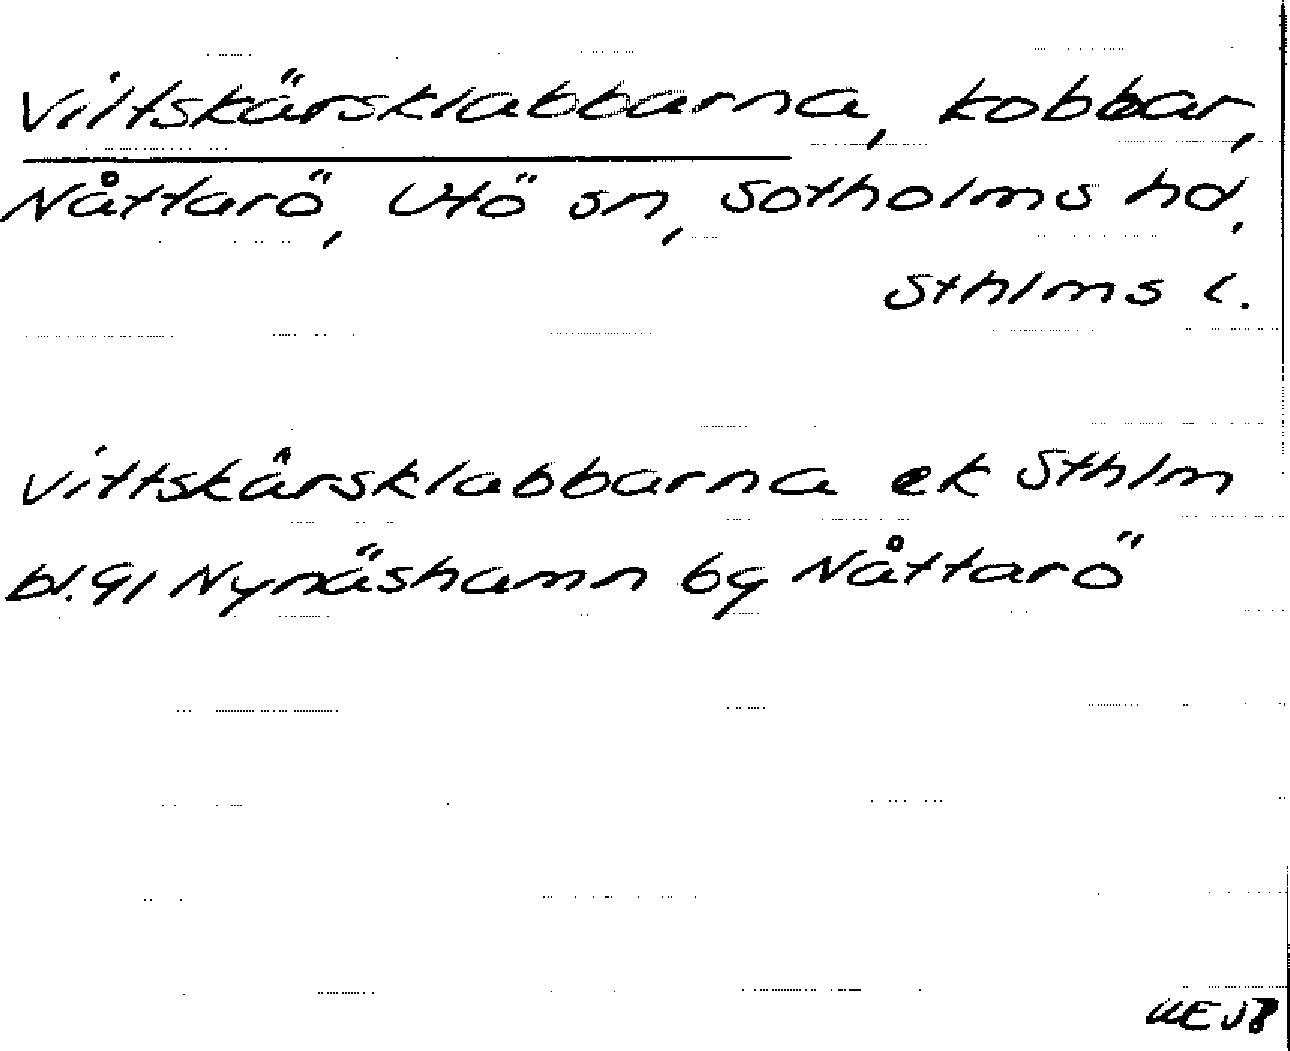 Viltskärsklabbarna, kobbar,
Nåttarö, Utö sn, Sotholms hd,
Sthlms l.
Vittskärsklabbarna ek Sthlm
bl. 91 Nynäshamn 6g Nåttarö